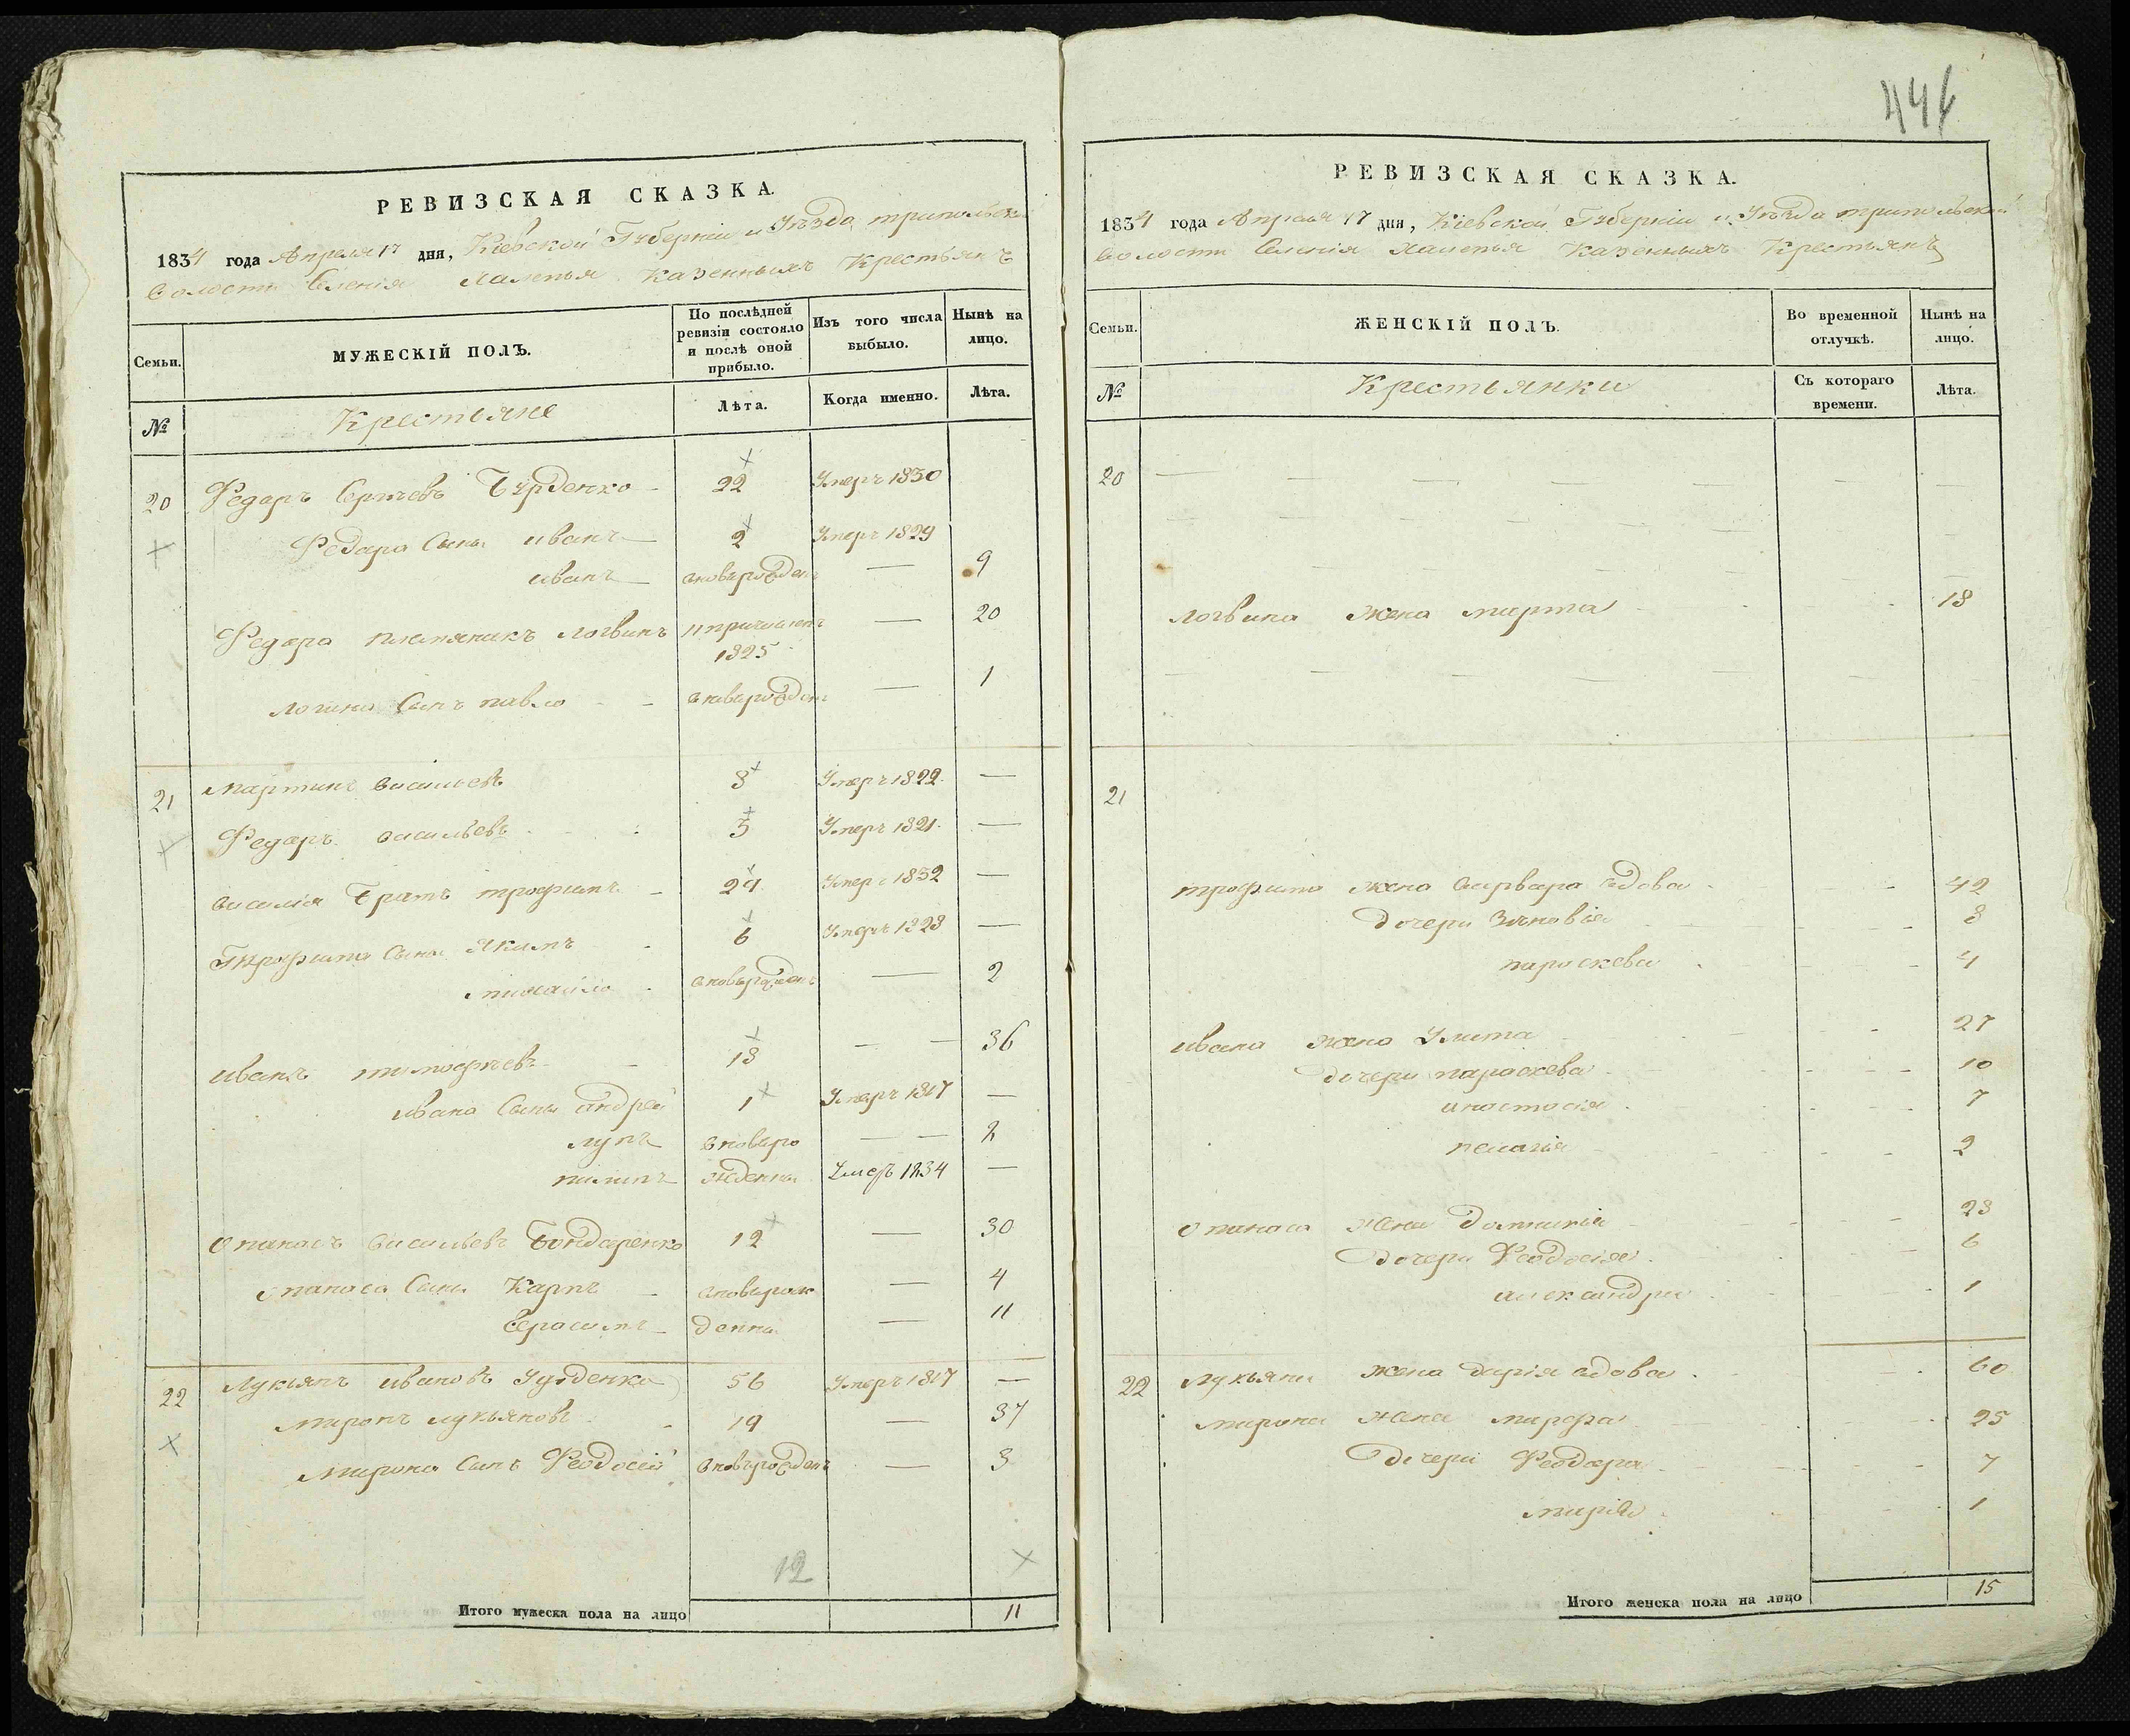 РЕВИЗСКАЯ СКАЗКА.
1834 года Апреля 17 дня, Кіевской Губерніи и Уѣзда трипольской
волости Селенія Халепья Казенныхъ Крестьянъ
Семьи.
МУЖЕСКІЙ ПОЛЪ.
По послѣдней ревизіи состояло и послѣ оной прибыло.
Изъ того числа выбыло.
Нынѣ на лицо.
№
Крестьяне
Лѣта.
Когда именно.
Лѣта.
20 Федаръ Сергѣевъ 22 Умеръ 1830
Федара Сыны иванъ 2 Умеръ 1829
иванъ вноворожденъ — 9
Федора племяникъ логвинъ причисленъ — 20
1825
Сынъ павло вноворожденъ — 1
21 мартинъ васильевъ 8 Умеръ 1822 —
Федаръ васильевъ 5 Умеръ 1821 —
василія братъ трофимъ 29 Умеръ 1832 —
Трофима Сыны Якимъ 6 Умеръ 1823 —
михайло вноворожденъ — 2
иванъ тимофѣевъ 18 — 36
ивана Сыны андрей 1 Умеръ 1817 —
лупъ вноворо — 2
пилипъ жденны Умеръ 1834 —
опанасъ васильевъ Бондаренко 12 — 30
опанаса Сыны Карпъ вноворож — 4
Герасимъ денны — 11
22 Лукьянъ ивановъ 56 Умеръ 1817 —
миронъ лукьяновъ 19 — 37
мирона Сынъ Феодосій вноворожденъ — 3
12
Итого мужеска пола на лицо 11
РЕВИЗСКАЯ СКАЗКА.
1834 года Апреля 17 дня, Кіевской Губерніи и Уѣзда трипольской
волости Селенія Халепья Казенныхъ Крестьянъ
Семьи.
ЖЕНСКІЙ ПОЛЪ.
Во временной отлучкѣ.
Нынѣ на лицо.
№
Крестьянки
Съ котораго времени.
Лѣта.
20
логвина жена марта 18
21
трофима жена варвара вдова 42
дочери Зѣновія 8
параскева 4
ивана жена Улита 27
дочери параскева 10
анастасія 7
пелагія 2
опанаса жена 23
дочери Феодосія 6
александра 1
22 лукьяна жена дарія вдова 60
мирона жена марфа 25
дочери Феодора 7
марія 1
Итого женска пола на лицо 15